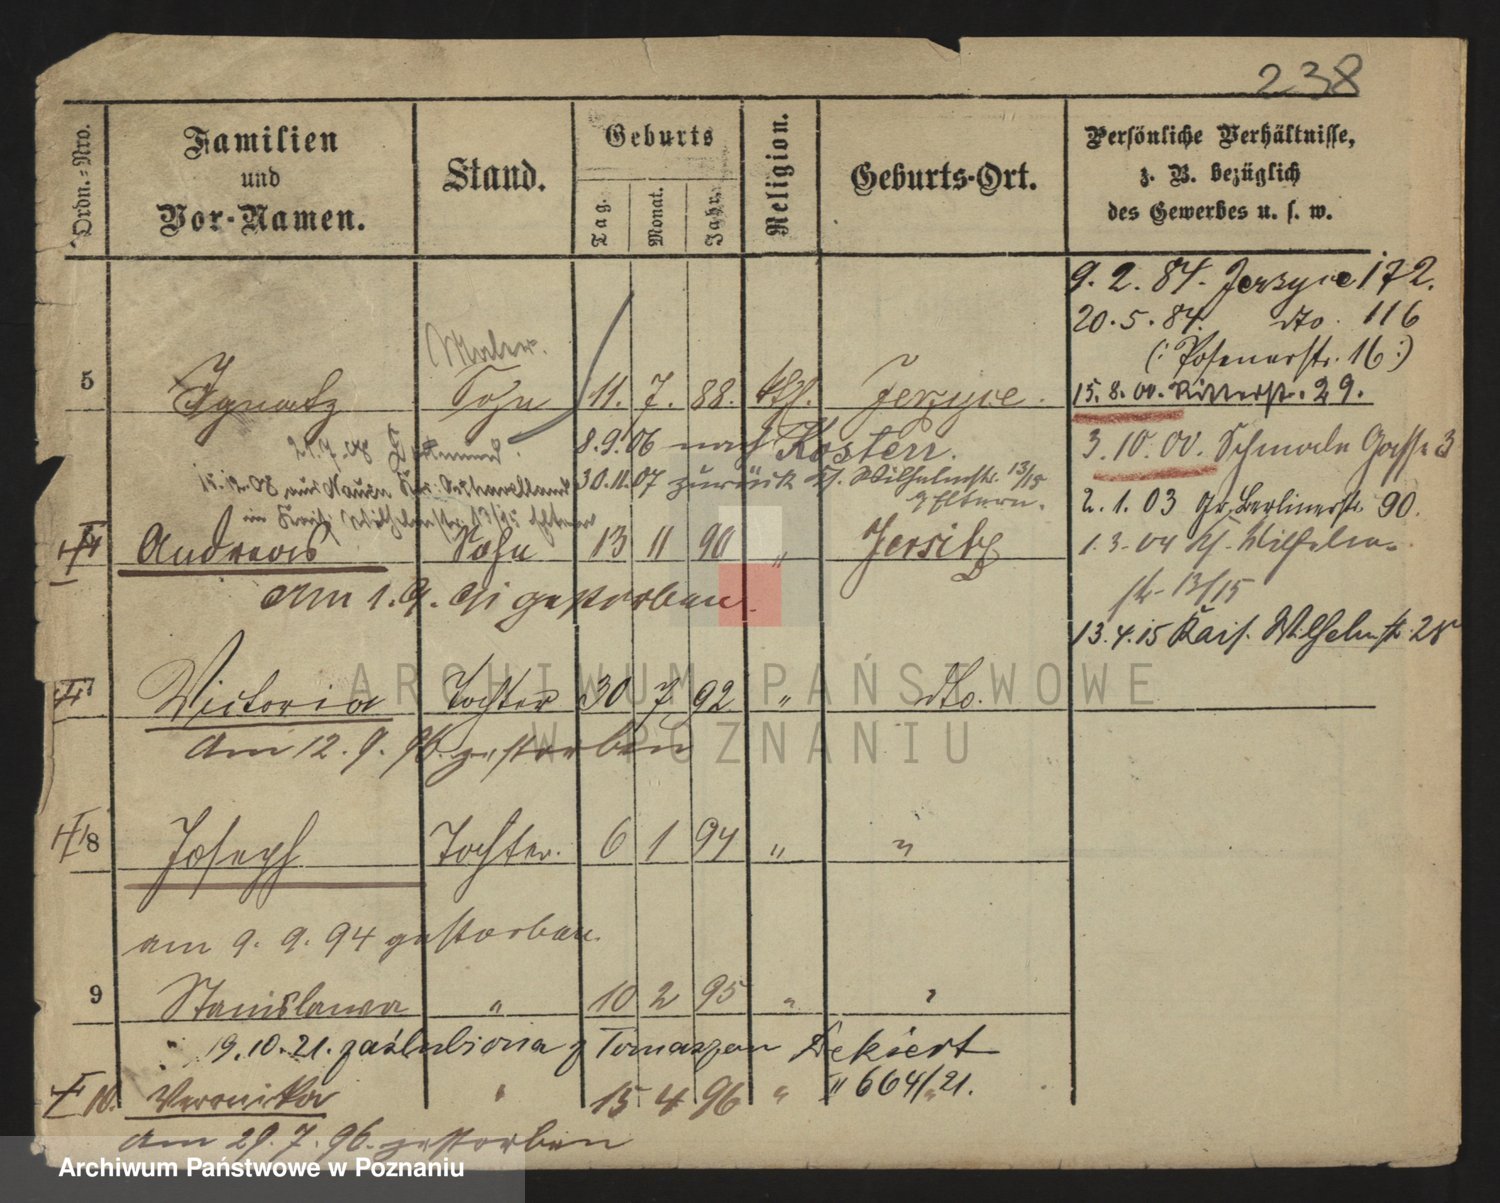 238
Ordn.-Nro.
Familien
und
Vor-Namen.
Stand.
Geburts
Tag.
Monat.
Jahr.
Religion.
Geburts-Ort.
Persönliche Verhältnisse,
z. B. bezüglich
des Gewerbes u. s. w.
9. 2. 84. Jerzyce 172.
20. 5. 84. dto. 116
(: Posenerstr. 16 :)
Maler.
5 Ignatz Sohn 11. 7. 88. kth. Jerzyce.
15. 8. 00. Ritterstr. 29.
8. 9. 06 nach Kosten.
3. 10. 00. Schmale Gasse 3
30. 11. 07 zurück Ks. Wilhelmstr. 13/15
z Eltern.
2. 1. 03 Gr. Berlinerstr. 90.
Andreas Sohn 13 11 90 " Jersitz
1. 3. 04 Ks. Wilhelm-
str. 13/15
am 1. 9. 91 gestorben.
13. 4. 15 Kais. Wilhelmstr. 28
Victoria Tochter 30 7 92 " dto.
am 12. 9. 96. gestorben
8 Joseph Tochter. 6 1 94 " "
am 9. 9. 94 gestorben.
9 Stanislawa " 10 2 95 " "
" 19. 10. 21. zaślubiona z Tomaszem Dekiert
" 664/21.
10. Veronika " 15 4 96 "
am 29. 7. 96. gestorben
ARCHIWUM PAŃSTWOWE
W POZNANIU
Archiwum Państwowe w Poznaniu